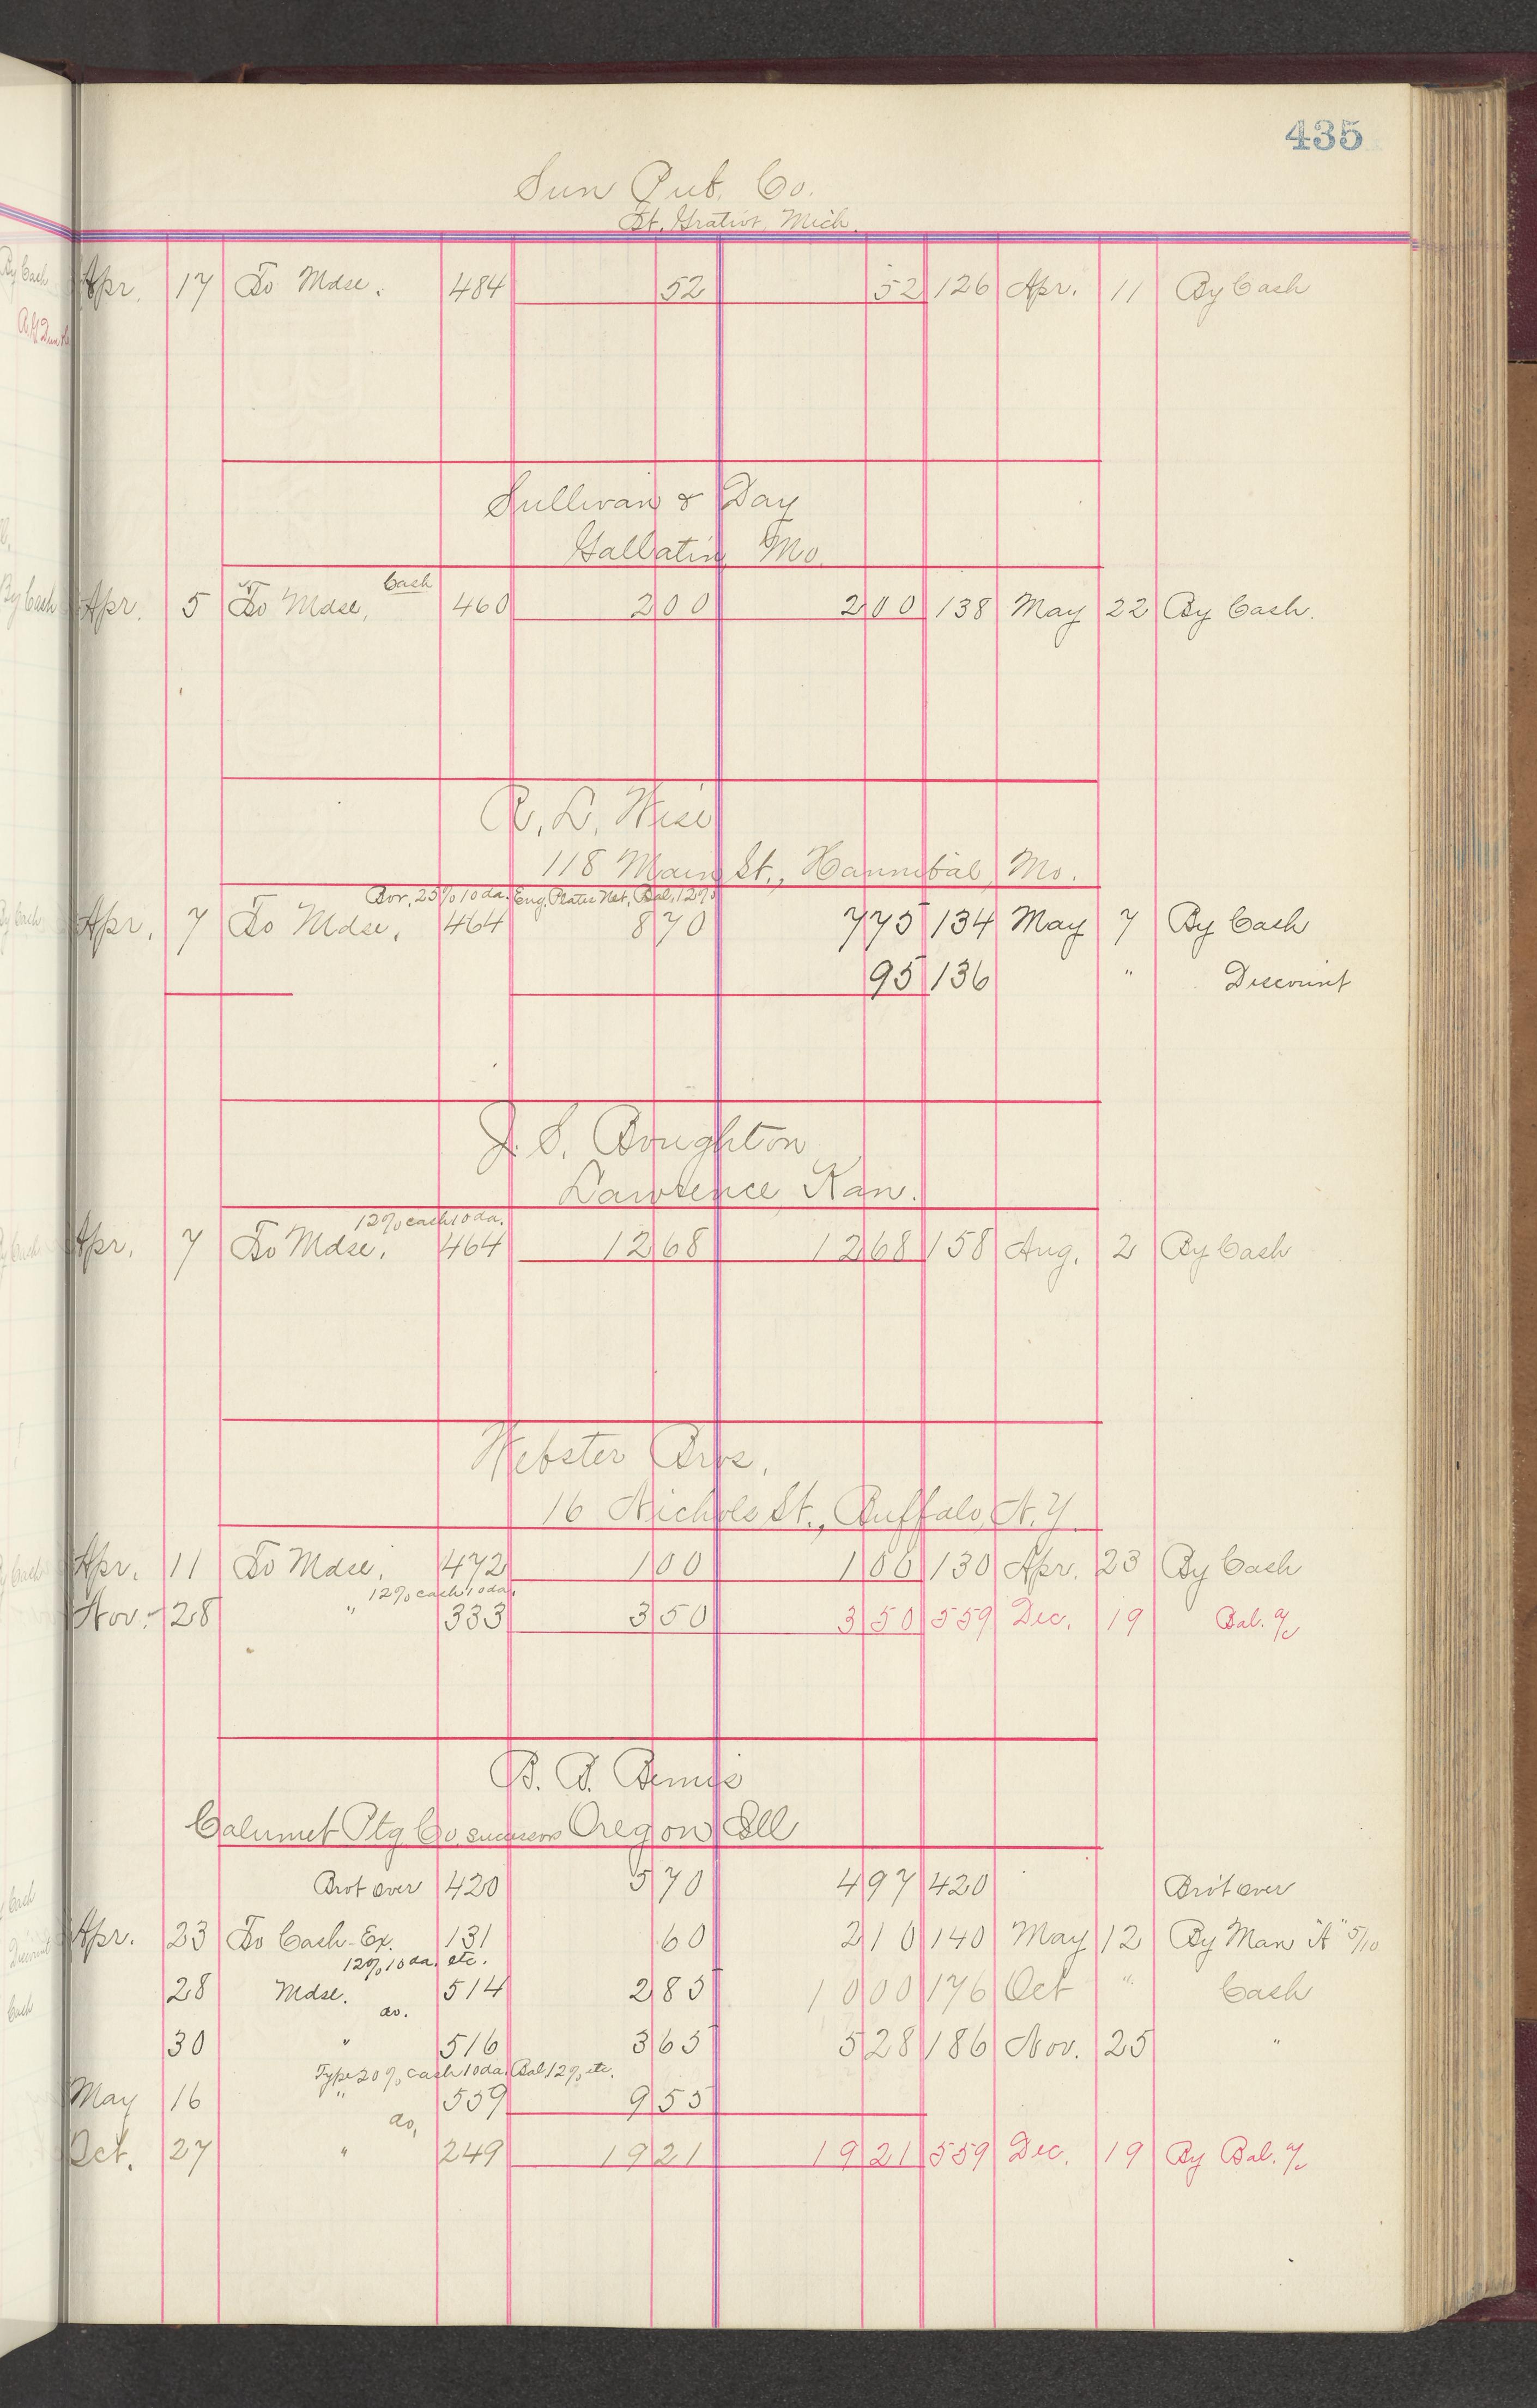 435
Sun Pub. Co.
Ft. Gratiot, Mich.
Apr. 17 To Mdse. 484 52 52 126 Apr. 11 By Cash
Sullivan & Day
Gallatin Mo.
Cash
Apr. 5 To Mdse, 460 2 00 2 00 138 May 22 By Cash.
R. D. Wise
118 Main St., Hannibal, Mo.
Bor, 25% 10 da. Eng. Plates Net, Bal, 12%
Apr. 7 To Mdse, 464 8 70 7 75 134 May 7 By Cash
95 136 " Discount
J. S. Boughton
Lawrence Kan.
12% cash 10 da.
Apr. 7 To Mdse, 464 12 68 12 68 158 Aug. 2 By Cash
Webster Bros.
16 Nichols St., Buffalo, N.Y.
Apr. 11 To Mdse, 472 1 00 1 00 130 Apr. 23 By Cash
12% cash 10 da.
Nov. 28 " 333 3 50 3 50 559 Dec. 19 Bal. a/c
B. B. Bemis
Calumet Ptg Co. successors Oregon Ill
Brot over 420 5 70 4 97 420 Brot over
Apr. 23 To Cash-Ex. 131 60 2 10 140 May 12 By Man "A" 5/10
12% 10 da. etc.
28 Mdse. 514 2 85 10 00 176 Oct " Cash
do.
30 " 516 3 65 5 28 186 Nov. 25 "
Type 20% cash 10 da. Bal 12% etc.
May 16 " 559 9 55
do,
Oct. 27 " 249 19 21 19 21 559 Dec. 19 By Bal. a/c